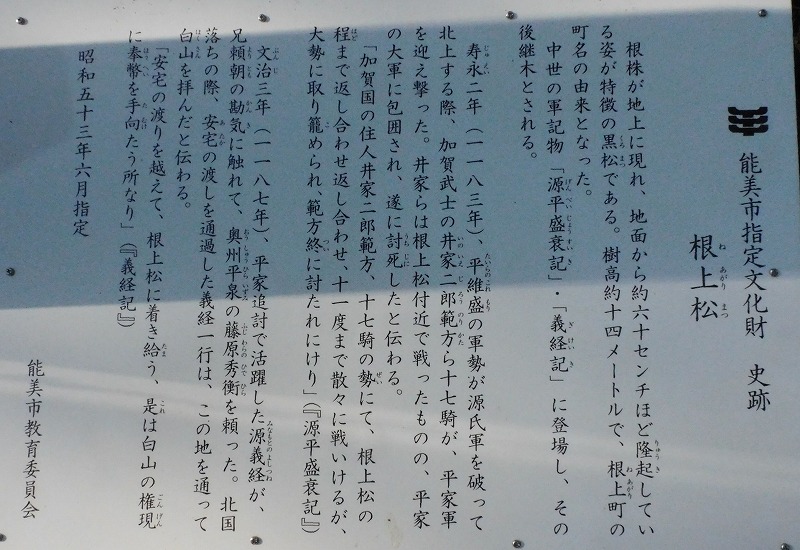 能美市指定文化財　史跡
根上松
根株が地上に現れ、地面から約六十センチほど隆起してい
る姿が特徴の黒松である。樹高約十四メートルで、根上町の
町名の由来となった。
中世の軍記物「源平盛衰記」・「義経記」に登場し、その
後継木とされる。
寿永二年（一一八三年）、平維盛の軍勢が源氏軍を破って
北上する際、加賀武士の井家二郎範方ら十七騎が、平家軍
を迎え撃った。井家らは根上松付近で戦ったものの、平家
の大軍に包囲され、遂に討死したと伝わる。
「加賀国の住人井家二郎範方、十七騎の勢にて、根上松の
程まで返し合わせ返し合わせ、十一度まで散々に戦いけるが、
大勢に取り籠められ、範方終に討たれにけり」（『源平盛衰記』）
文治三年（一一八七年）、平家追討で活躍した源義経が、
兄頼朝の勘気に触れて、奥州平泉の藤原秀衡を頼った。北国
落ちの際、安宅の渡しを通過した義経一行は、この地を通って
白山を拝んだと伝わる。
「安宅の渡りを越えて、根上松に着き給う、是は白山の権現
に奉幣を手向たう所なり」（『義経記』）
昭和五十三年六月指定
能美市教育委員会